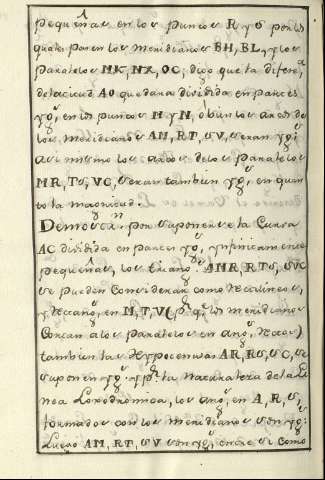 pequeñas en los puntos R y S por los
quales pasen los meridianos BH, BL, y los
Paralelos MK, NX, OC; digo que la diferª
de latitud AO quedara dividida en partes
ygs, en los puntos M y N, los arcos de
los meridianos AM, RT, SV, seran ygs:
asi mismo los arcos de los Paralelos
MR, TS, VC, seran tambien ygs, en quan
to la magnitud.
Demostrn. por suponerse la Curva
AC dividida en partes ygs, ynfinitamente
pequeñas, los triangs. AMR, RTS, SVC
se pueden Considerar como Rectilineos,
y Rectangs, en M, T, V (pr qe los meridianos
Cortan a los Paralelos en angs, Rectos)
tambien las Hypotenusas AR, RS, SC, se
suponen ygs. y pr la naturaleza de la Lí
nea Loxodromica, los angs, en A, R, S,
formados con los meridianos son ygs:
Luego AM, RT, SV son ygs, entre si como